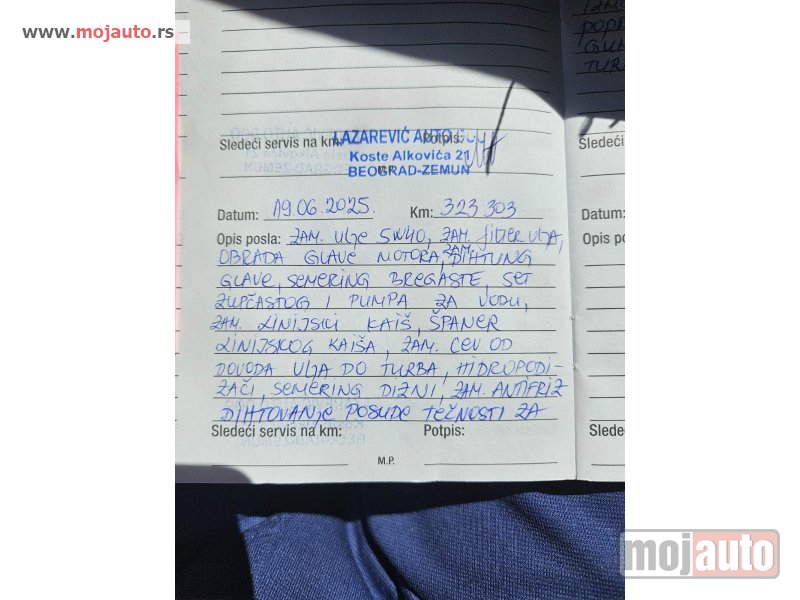 www.mojauto.rs
GUM
TUR
Sledeći servis na km: Potpis:
LAZAREVIĆ AUTO
Koste Alkovića 21
BEOGRAD-ZEMUN
M.P.
Datum: 19.06.2025. Km: 323 303
Opis posla: ZAM. Ulje 5W40, ZAM. filter ulja,
OBRADA GLAVE MOTORA, ZAM. DIHTUNG
GLAVE, SEMERING BREGASTE, SET
ZUPČASTOG I PUMPA ZA VODU,
ZAM. LINIJSKI KAIŠ, ŠPANER
LINIJSKOG KAIŠA, ZAM. CEV OD
DOVODA ULJA DO TURBA, HIDROPODI-
ZAČI, SEMERING DIZNI, ZAM. ANTIFRIZ
DIHTOVANJE POSUDE TEČNOSTI ZA
Sledeći servis na km: Potpis:
M.P.
Sledeć
Datum:
Opis po
Sledeć
mojauto